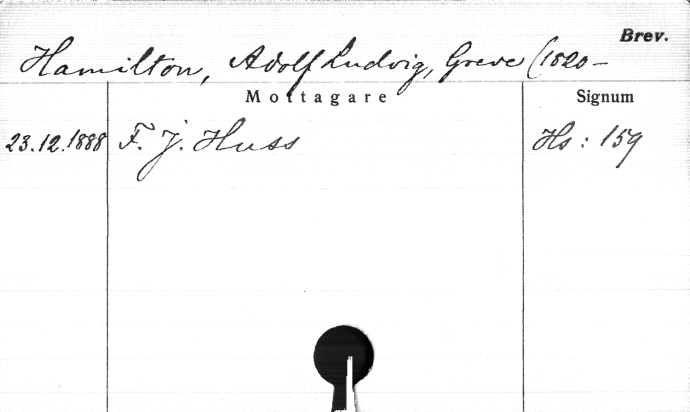 Brev.
Hamilton, Adolf Ludvig, Greve (1820–
Mottagare Signum
23.12.1888 F. J. Huss Hs: 159